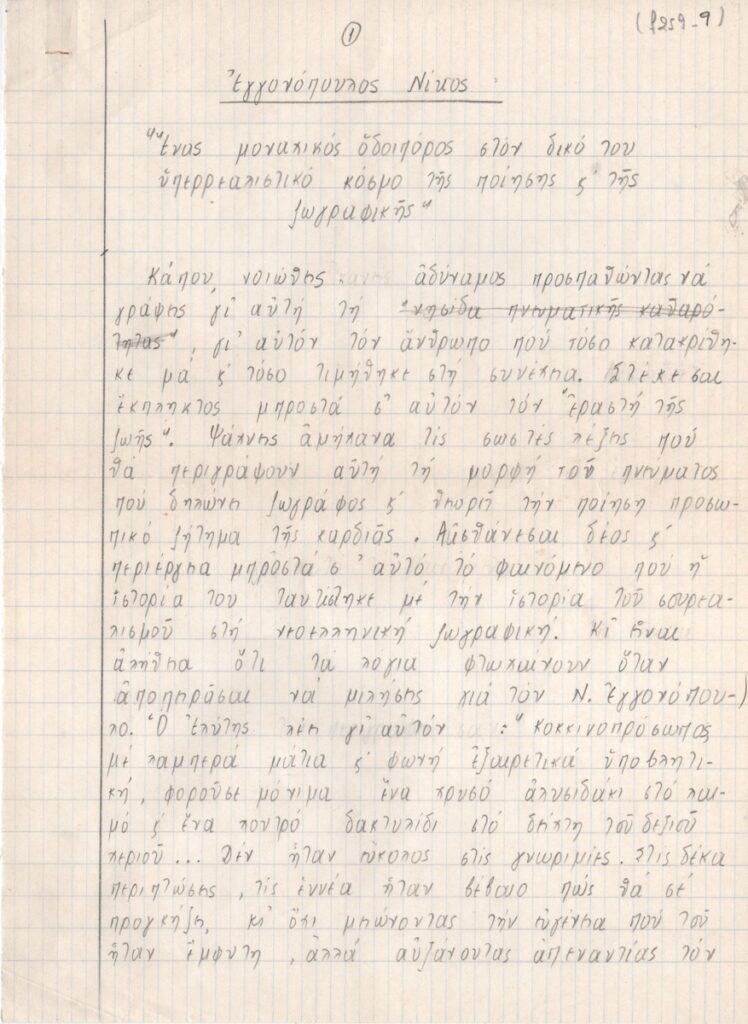 (f259-9)
1
Ἐγγονόπουλος Νίκος
"Ἕνας μοναχικός ὁδοιπόρος στόν δικό του
ὑπερρεαλιστικό κόσμο τῆς ποίησης κ' τῆς
ζωγραφικῆς"
Κάπου νοιώθεις ἀδύναμος προσπαθώντας νά
γράψεις γι' αὐτή τή "νησίδα πνευματικῆς καθαρό-
τητας", γι' αὐτόν τόν ἄνθρωπο πού τόσο κατακρίθη-
κε μά κ' τόσο τιμήθηκε στή συνέχεια. Στέκεσαι
ἔκπληκτος μπροστά σ' αὐτόν τόν "ἐραστή τῆς
ζωῆς". Ψάχνεις ἀμήχανα τίς σωστές λέξεις πού
θά περιγράψουν αὐτή τή μορφή τοῦ πνεύματος
πού δηλώνει ζωγράφος κ' θεωρεῖ τήν ποίηση προσω-
πικό ζήτημα τῆς καρδιᾶς. Αἰσθάνεσαι δέος κ'
περιέργεια μπροστά σ' αὐτό τό φαινόμενο πού ἡ
ἱστορία του ταυτίστηκε μέ τήν ἱστορία τοῦ σουρεα-
λισμοῦ στή νεοελληνική ζωγραφική. Κι εἶναι
ἀλήθεια ὅτι τά λόγια φτωχαίνουν ὅταν
ἀποπειρᾶσαι νά μιλήσεις γιά τόν Ν. Ἐγγονόπου-
λο. Ὁ Ἐλύτης λέει γι' αὐτόν :" κοκκινοπρόσωπος
μέ λαμπερά μάτια κ' φωνή ἐξαιρετικά ὑποβλητι-
κή, φοροῦσε μόνιμα ἕνα χρυσό ἁλυσιδάκι στό λαι-
μό κ' ἕνα χοντρό δακτυλίδι στό δείκτη τοῦ δεξιοῦ
χεριοῦ... Δέν ἦταν εὔκολος στίς γνωριμίες. Στίς δέκα
περιπτώσεις, τίς ἐννέα ἦταν βέβαιο πώς θά σέ
προγκήξει, κι ὄχι μειώνοντας τήν εὐγένεια πού τοῦ
ἦταν ἔμφυτη, ἀλλά αὐξάνοντας ἀπεναντίας τόν